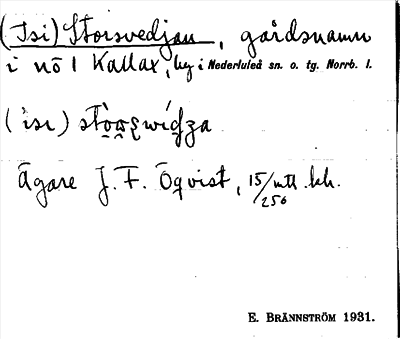 (Isi) Storsvedjan, gårdsnamn
i nö 1 Kallax, by i Nederluleå sn. o. tg. Norrb. l.
(isi)
Ägare J. F. Öqvist, 15/256 mtl kh.
E. BRÄNNSTRÖM 1931.